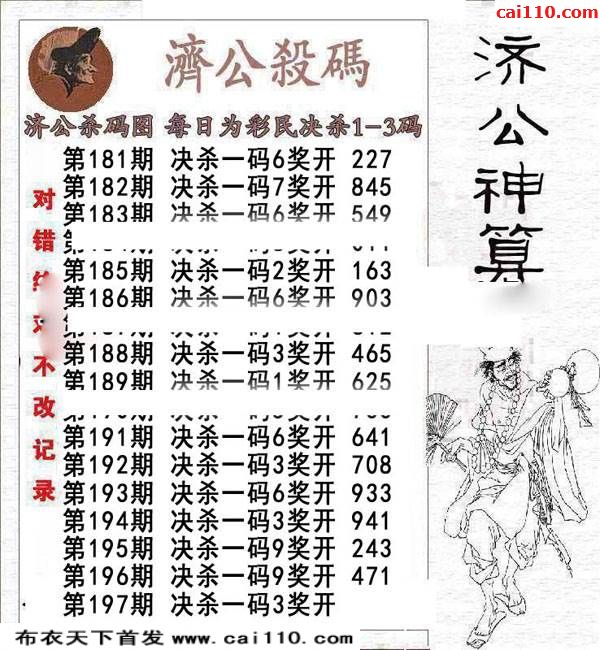 cai110.com
濟公殺碼
济公神算
济公杀码图 每日为彩民决杀1-3码
第181期 决杀一码6奖开 227
第182期 决杀一码7奖开 845
第183期 决杀一码6奖开 549
第185期 决杀一码2奖开 163
第186期 决杀一码6奖开 903
第188期 决杀一码3奖开 465
第189期 决杀一码1奖开 625
第191期 决杀一码6奖开 641
第192期 决杀一码3奖开 708
第193期 决杀一码6奖开 933
第194期 决杀一码3奖开 941
第195期 决杀一码9奖开 243
第196期 决杀一码9奖开 471
第197期 决杀一码3奖开
对错
不改记录
布衣天下首发 www.cai110.com